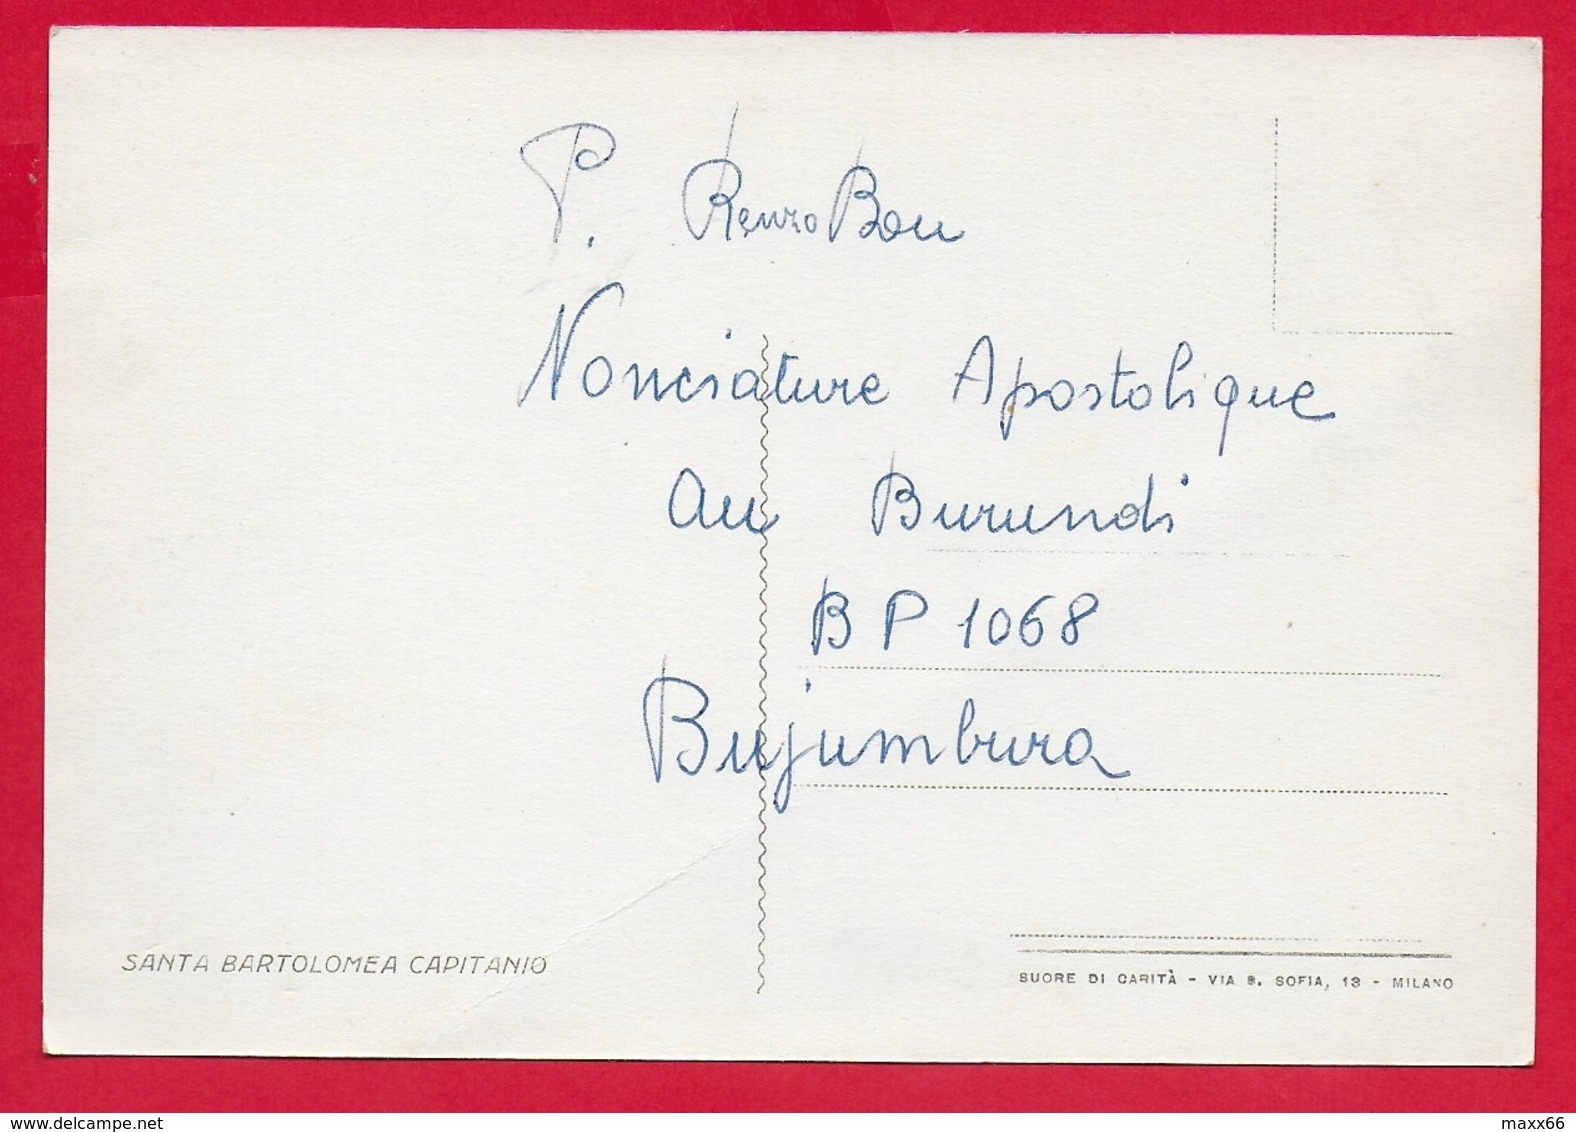 P. Renzo Bon
Nonciature Apostolique
au Burundi
BP 1068
Bujumbura
SANTA BARTOLOMEA CAPITANIO
SUORE DI CARITÀ - VIA S. SOFIA, 13 - MILANO
maxx66
www.delcampe.net